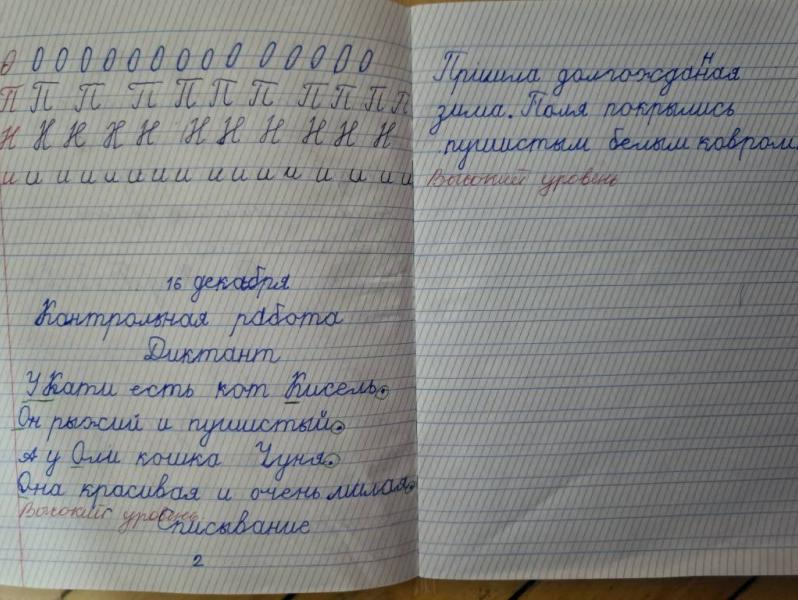 О О О О О О О О О О О О О О О
П П П П П П П П П П П
Н Н Н Н Н Н Н Н Н Н Н
и и и и и и и и и и и и и и и и
16 декабря
Контрольная работа
Диктант
У Кати есть кот Кисель.
Он рыжий и пушистый.
А у Оли кошка Чуня.
Она красивая и очень милая.
Высокий уровень.
Списывание
2
Пришла долгожданная
зима. Поля покрылись
пушистым белым ковром.
Высокий уровень